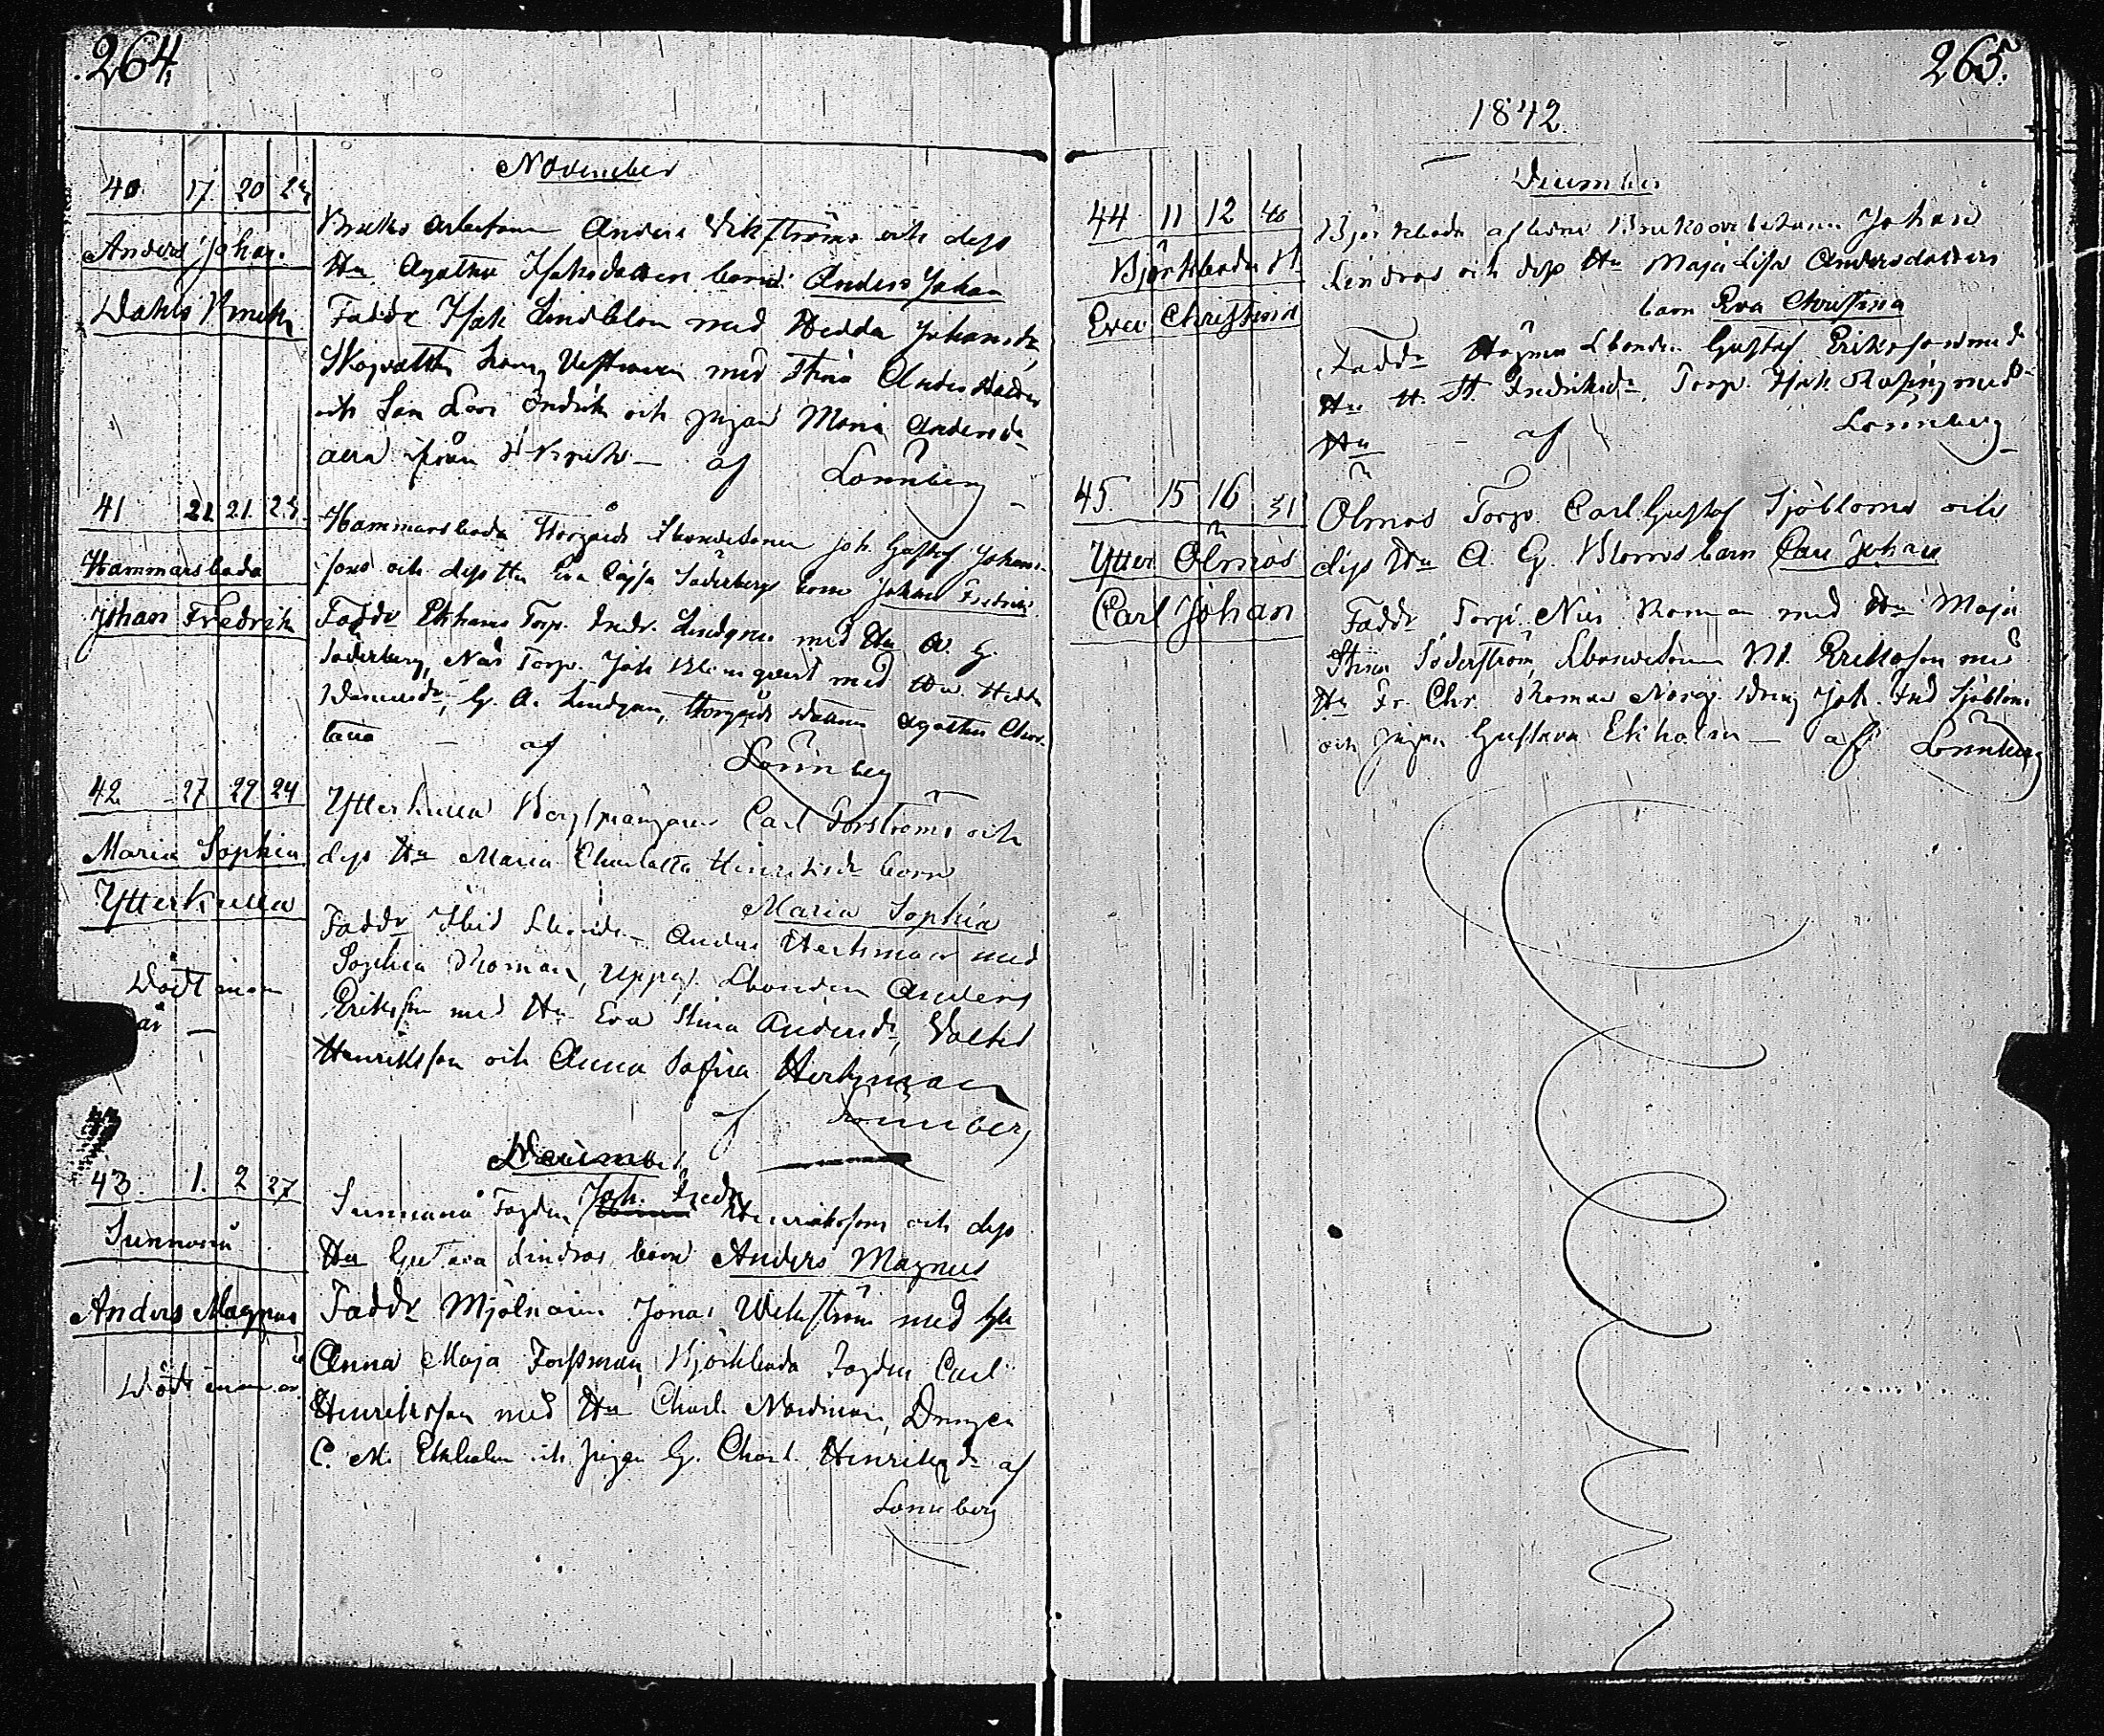 264.
November
40. 17. 20 24
Anders Johan.
Dahls Bruk
Bruks arbetaren Anders Vikströms och dess
Hu Agatha Isaksdotters barn Anders Johan
Faddr Isak Lindblom med Hedda Johansdr,
med Stina Andersdotter
och Lars Leos Endrik och pigan Maria Andersdr
ifrån d. Bruk — af Lönnberg
41 21. 21. 24.
Hammarsboda
Johan Fredrik
Hammarsboda Joh. Gustaf Johans-
sons och dess Hu Eva Cajsa Söderbergs barn Johan Fredrik
Faddr Ekhams Torp. Fredr. Lindgren med Hu A. G.
Söderberg, Näs Torp. Joh Blomqvist med Hu Hedda
G. A. Lindgren, Agatha
af Lönnberg
42. 27 29 24
Maria Sophia
Ytterkulla
Ytterkulla Carl Forströms och
dess Hu Maria Charlotta Henriksdr barn
Maria Sophia
Faddr Ibid Anders Hertsman med
Sophia Roman, Uppg. Lbonden Anders
Eriksson med Hu Eva Stina Andersdr,
Henriksson och Anna Sofia Hertzman
af Lönnberg
Dödt inom
år —
December
43. 1. 2 27
Sunnanå
Anders Magnus
Dödt inom år.
Sunnanå Fogden Joh. Fredr Henrikssons och dess
Hu Gustava Lindros barn Anders Magnus
Faddr Mjölnaren Jonas Wikström med Hu
Anna Maja Forssman, Björkboda Fogden Carl
Henriksson med Hu Charl. Nordman, Drengen
C. M. Ekholm och pigan G. Charl. Henriksdr af
Lönnberg
265.
1842.
December
44 11 12 40
Björkboda B.
Eva Christina
Björkboda aflidne Bruksarbetaren Johan
Lindros och dess Hu Maja Lisa Andersdotters
barn Eva Christina
Faddr Högmo Lbonden Gustaf Eriksson med
Hu H. St. Fredriksdr, Torp. Isak Rosing med
Hu — af Lönnberg
45. 15 16 31
Ytter Ölmos
Carl Johan
Ölmos Torp. Carl Gustaf Sjöbloms och
dess Hu A. G. Bloms barn Carl Johan
Faddr Torp. Nils Roman med Hu Maja
Stina Söderström, Lbondesonen M. Eriksson med
Hu Fr. Chr. Roman Norrg. dreng Joh. Fred Sjöblom
och pigan Gustava Ekholm — af Lönnberg